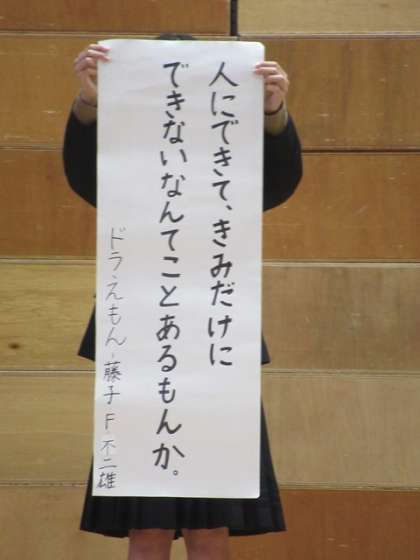 人にできて、きみだけに
できないなんてことあるもんか。
ドラえもん-藤子 F・不二雄